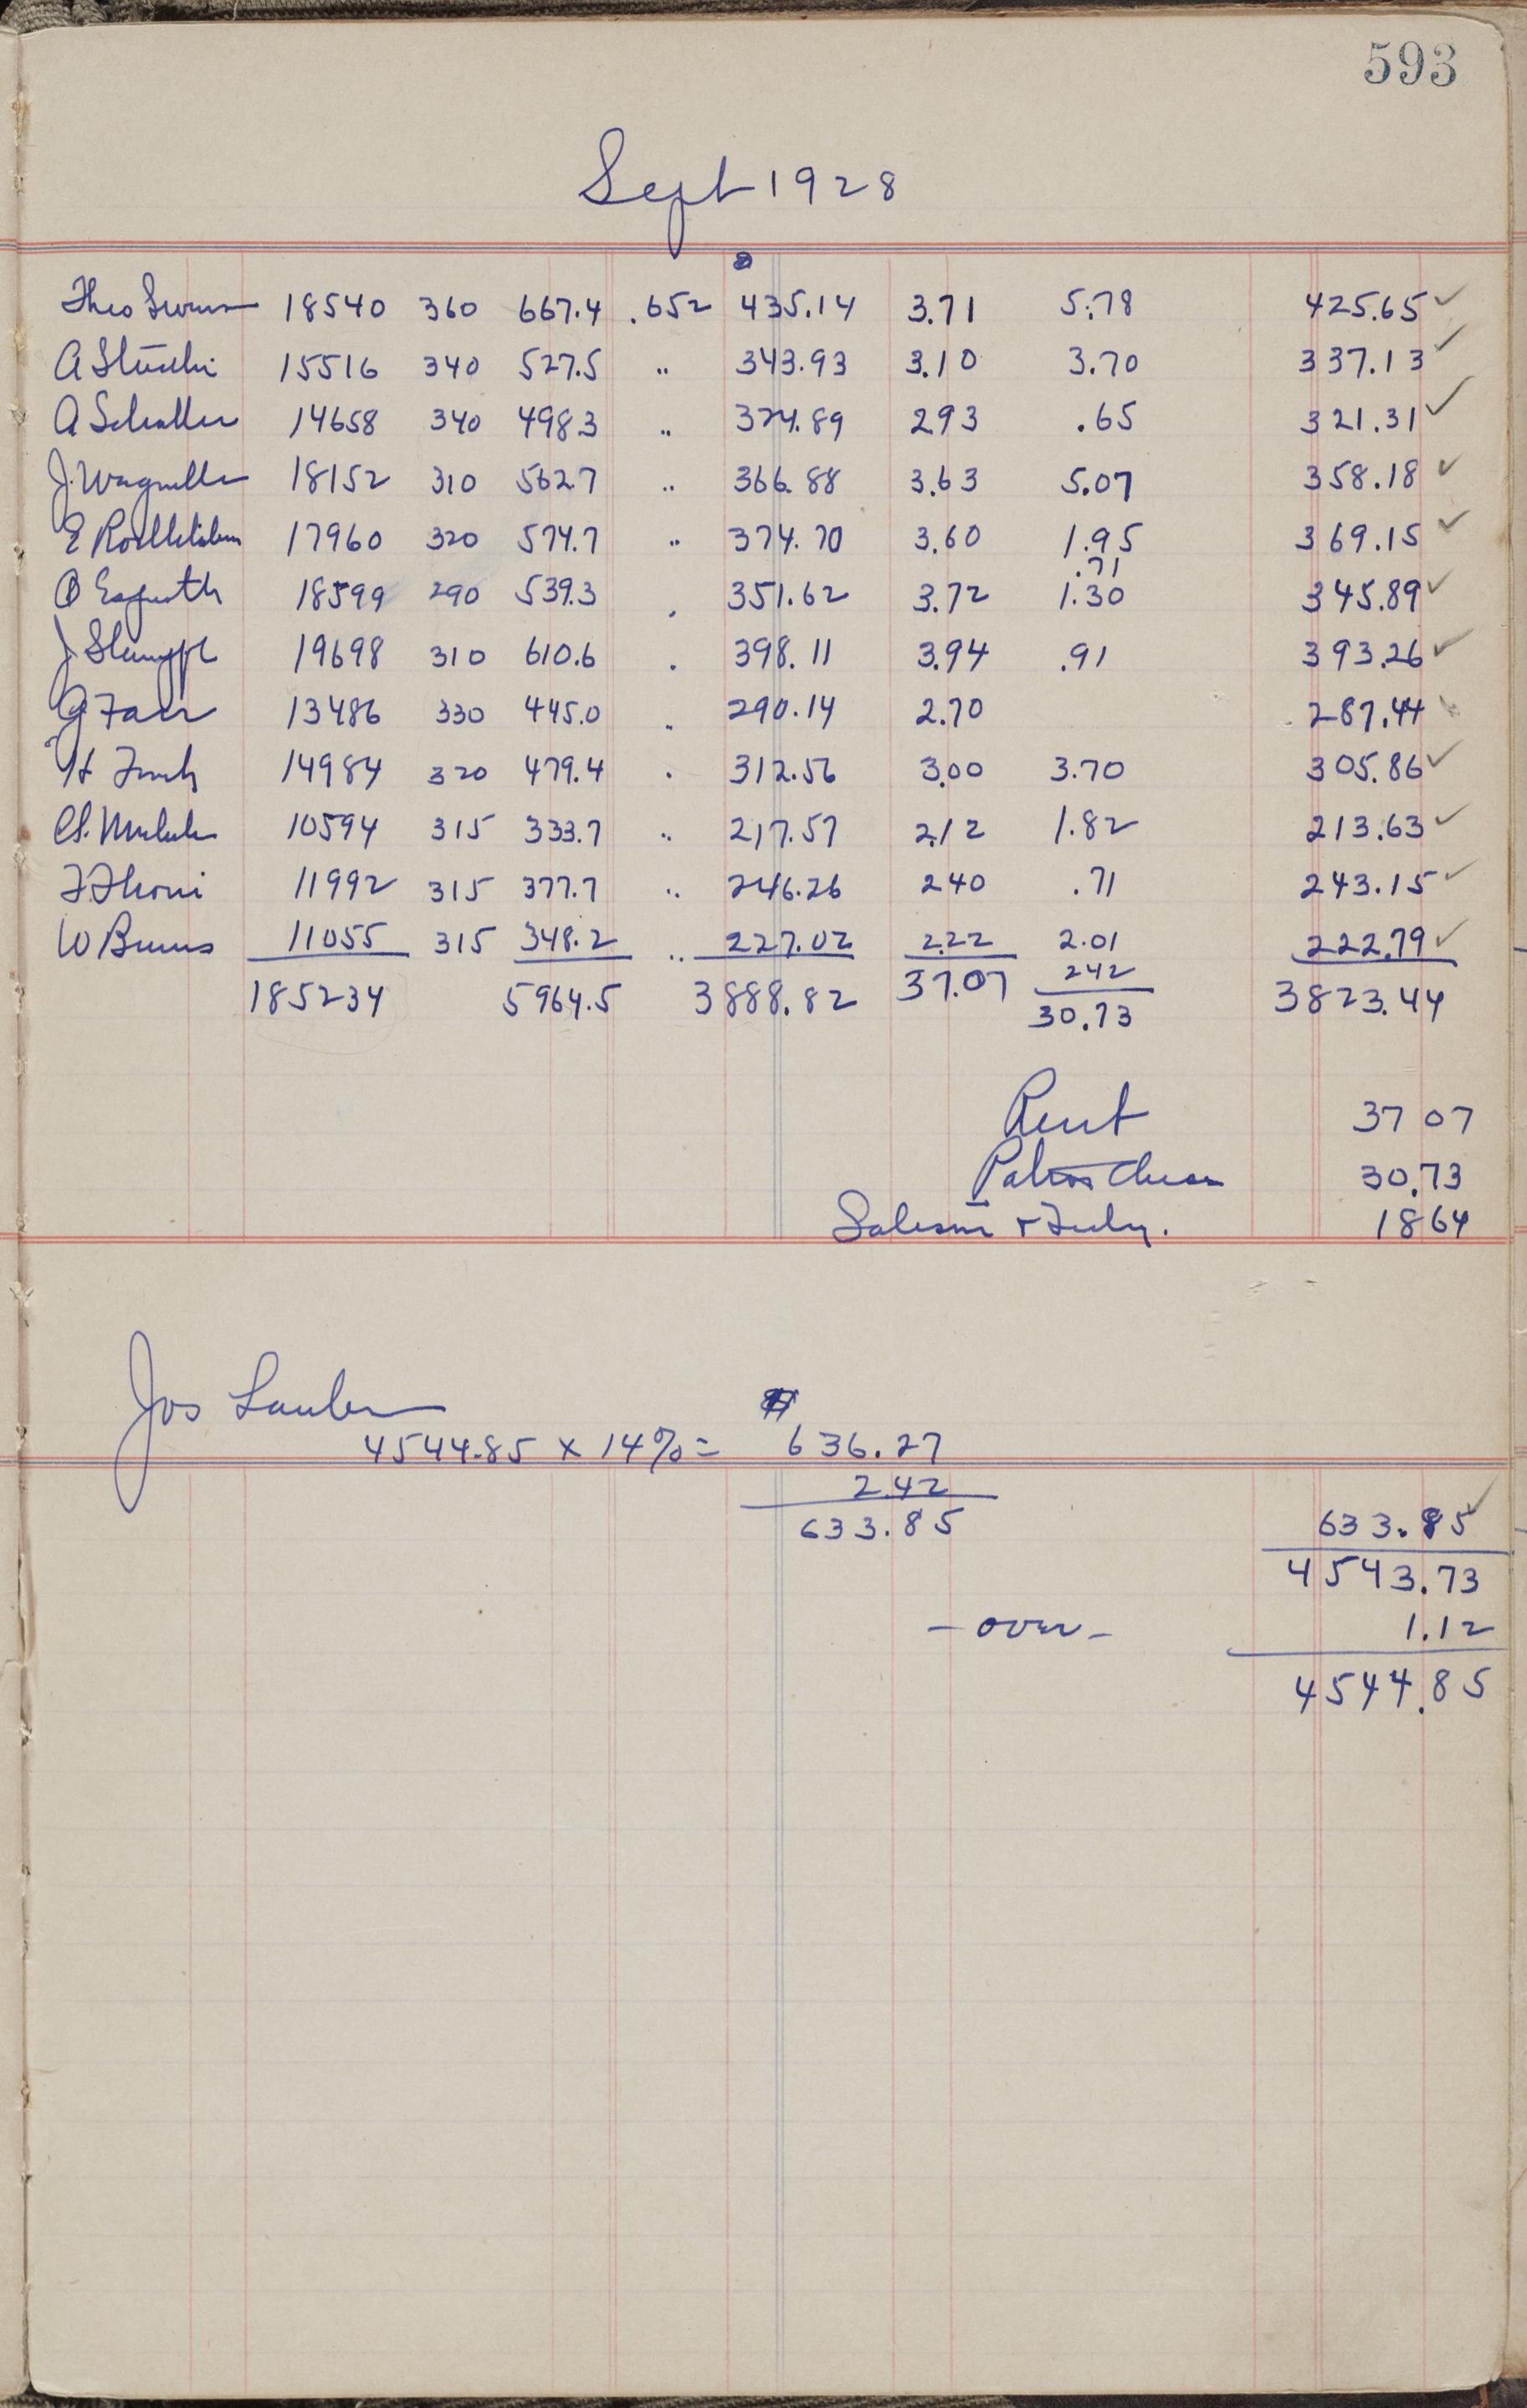 593
Sept 1928
Theo 18540 360 667.4 .652 435.14 3.71 5.78 425.65 ✓
A 15516 340 527.5 " 343.93 3.10 3.70 337.13 ✓
A 14658 340 498.3 " 324.89 2.93 .65 321.31 ✓
J. 18152 310 562.7 " 366.88 3.63 5.07 358.18 ✓
E 17960 320 574.7 " 374.70 3.60 1.95 369.15 ✓
.71
18599 290 539.3 . 351.62 3.72 1.30 345.89 ✓
J 19698 310 610.6 . 398.11 3.94 .91 393.26 ✓
G 13486 330 445.0 . 290.14 2.70 287.44 ✓
H 14984 320 479.4 . 312.56 3.00 3.70 305.86 ✓
10594 315 333.7 " 217.57 2.12 1.82 213.63 ✓
F. Thoni 11992 315 377.7 " 246.26 2.40 .71 243.15 ✓
W Burns 11055 315 348.2 " 227.02 2.22 2.01 222.79 ✓
2.42
185234 5964.5 3888.82 37.07 30.73 3823.44
Rent 37 07
30.73
July. 18 64
Jos Lauber
4544.85 x 14% = 636.27
2.42
633.85 633.85 ✓
4543.73
- over - 1.12
4544.85